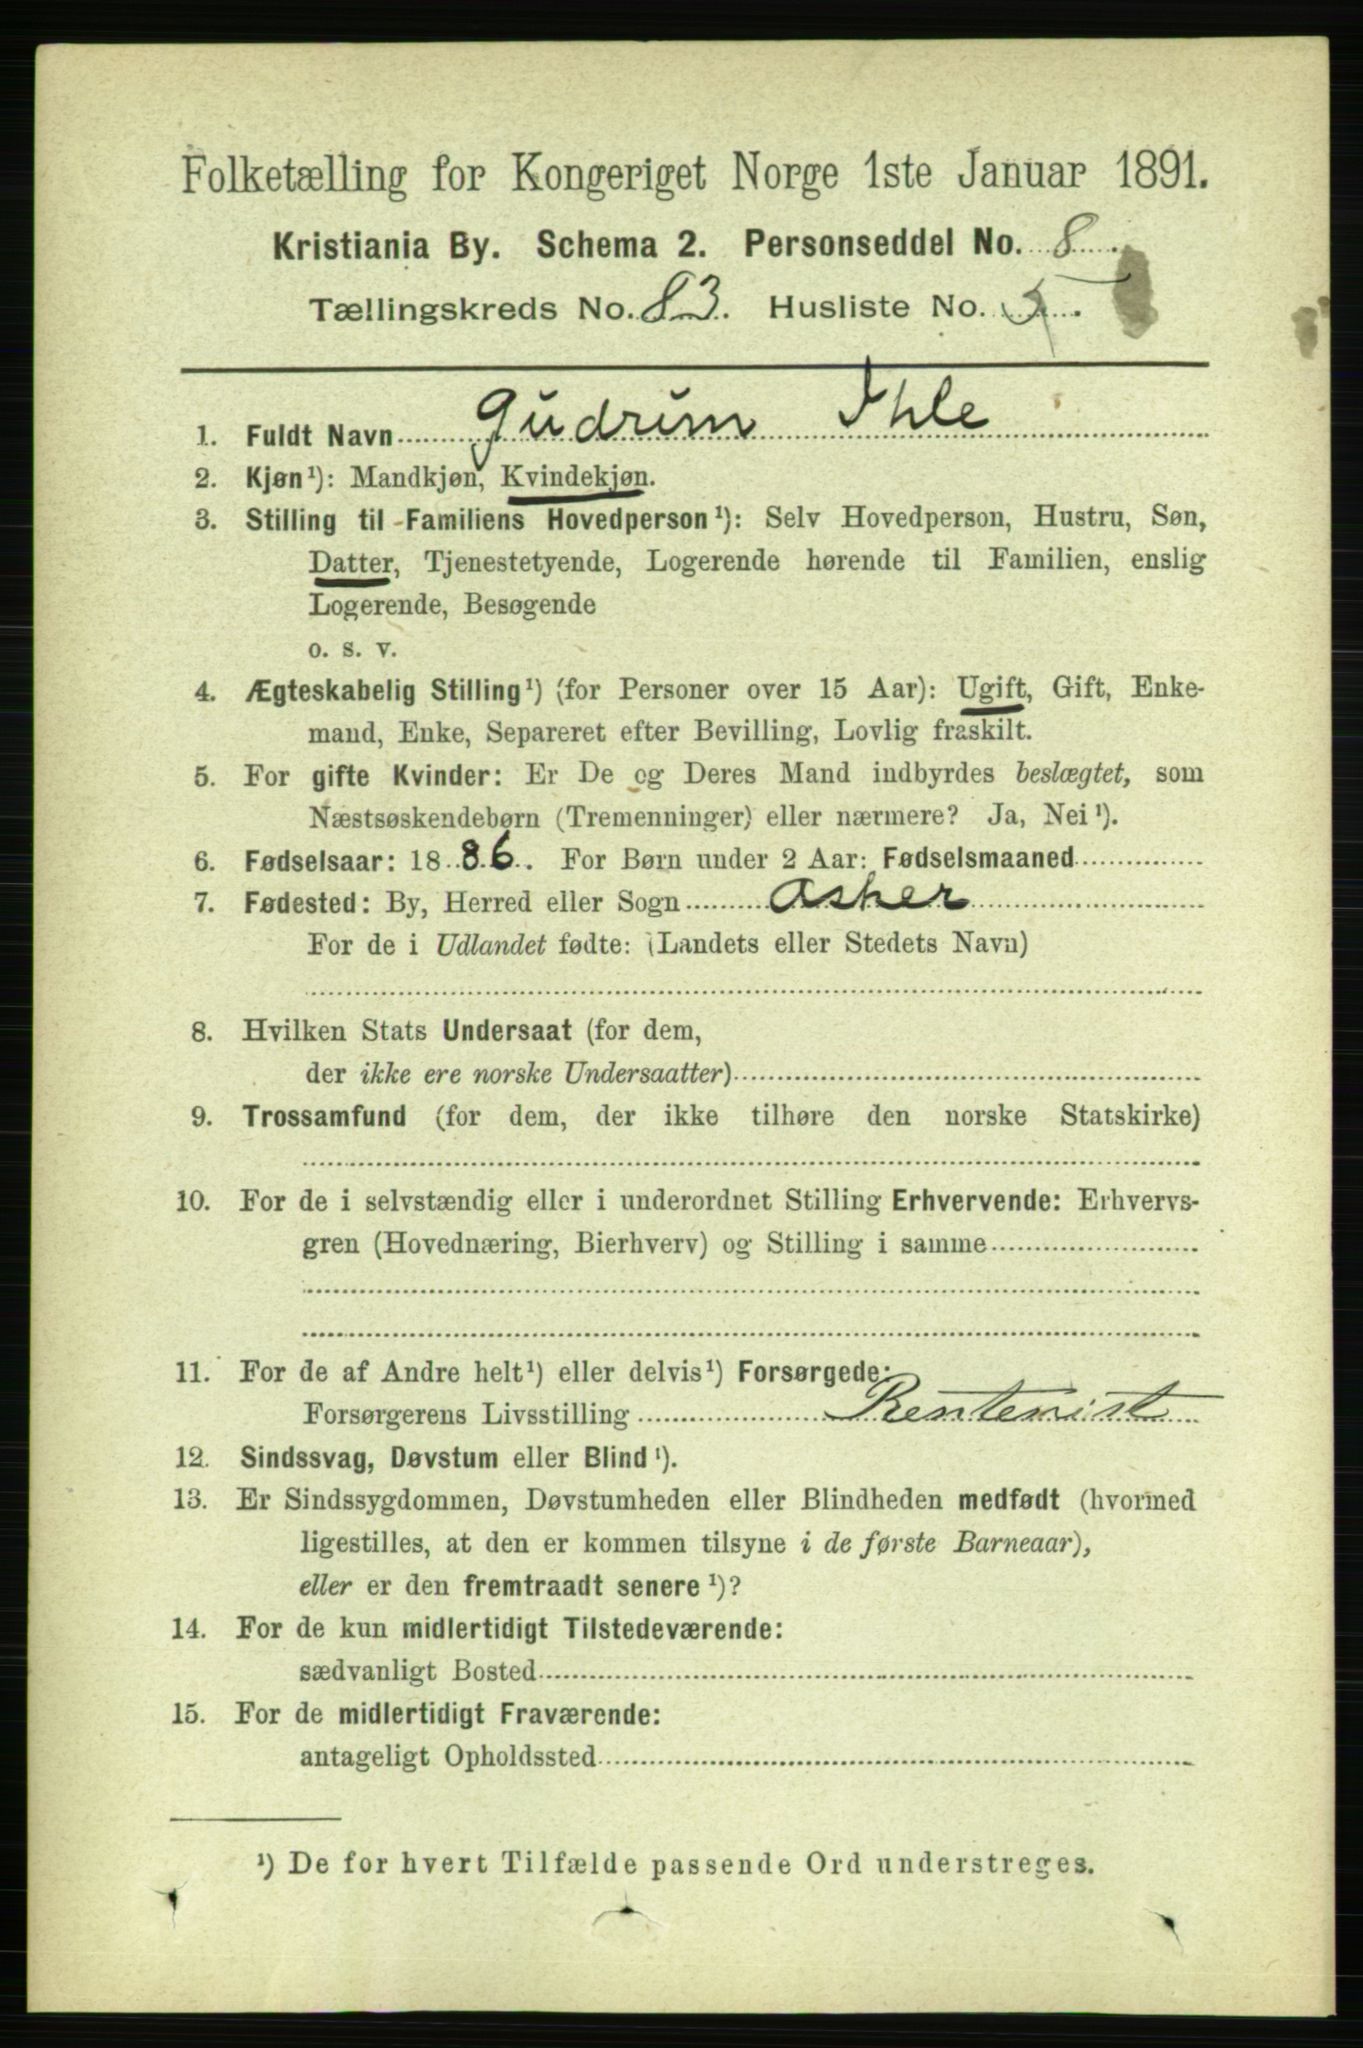 Folketælling for Kongeriget Norge 1ste Januar 1891.
Kristiania By. Schema 2. Personseddel No. 8
Tællingskreds No. 83. Husliste No. 5.
1. Fuldt Navn Gudrun Ihle
2. Kjøn¹): Mandkjøn, Kvindekjøn.
3. Stilling til Familiens Hovedperson¹): Selv Hovedperson, Hustru, Søn,
Datter, Tjenestetyende, Logerende hørende til Familien, enslig
Logerende, Besøgende
o. s. v.
4. Ægteskabelig Stilling¹) (for Personer over 15 Aar): Ugift, Gift, Enke-
mand, Enke, Separeret efter Bevilling, Lovlig fraskilt.
5. For gifte Kvinder: Er De og Deres Mand indbyrdes beslægtet, som
Næstsøskendebørn (Tremenninger) eller nærmere? Ja, Nei¹).
6. Fødselsaar: 1886. For Børn under 2 Aar: Fødselsmaaned
7. Fødested: By, Herred eller Sogn Asker
For de i Udlandet fødte: (Landets eller Stedets Navn)
8. Hvilken Stats Undersaat (for dem,
der ikke ere norske Undersaatter)
9. Trossamfund (for dem, der ikke tilhøre den norske Statskirke)
10. For de i selvstændig eller i underordnet Stilling Erhvervende: Erhvervs-
gren (Hovednæring, Bierhverv) og Stilling i samme
11. For de af Andre helt¹) eller delvis¹) Forsørgede:
Forsørgerens Livsstilling Rentenist
12. Sindssvag, Døvstum eller Blind¹).
13. Er Sindssygdommen, Døvstumheden eller Blindheden medfødt (hvormed
ligestilles, at den er kommen tilsyne i de første Barneaar),
eller er den fremtraadt senere¹)?
14. For de kun midlertidigt Tilstedeværende:
sædvanligt Bosted
15. For de midlertidigt Fraværende:
antageligt Opholdssted
¹) De for hvert Tilfælde passende Ord understreges.